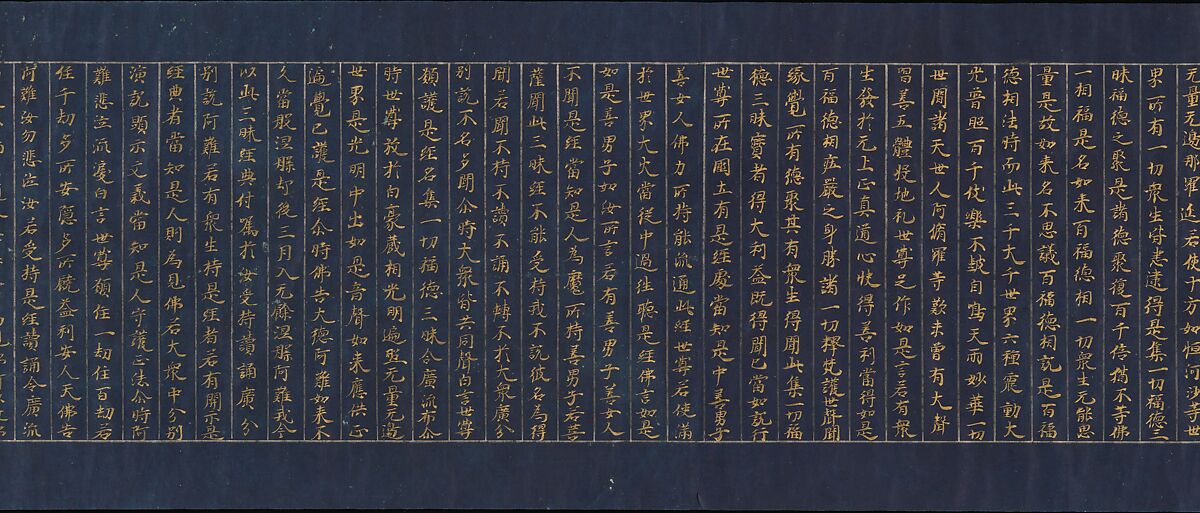 元量元邊那羅延若使十方如恒河沙世
界所有一切衆生皆悉逮得是集一切福德三
昧福德之聚是諸德聚復百千倍猶不等佛
一相福是名如来百福德相一切衆生无能思
量是故如来名不思議百福德相說是百福
德相法時而此三千大千世界六種震動大
光普照百千伎樂不鼓自鳴天雨妙華一切
世間諸天世人阿脩羅等歎未曾有大聲
唱善五體投地礼世尊足作如是言若有衆
生發於无上正真道心快得善利當得如是
百福德相莊嚴之身勝諸一切釋梵護世聲聞
緣覺所有德聚其有衆生得聞此集一切福
德三昧寶者得大利益既得聞已當如說行
世尊所在國土有是經處當知是中善男子
善女人佛力所持能流通此經世尊若使滿
於世界大火當從中過往聽是經佛言如是
如是善男子如汝所言若有善男子善女人
不聞是經當知是人為魔所持善男子若菩
薩聞此三昧經不能受持我不說彼名為得
聞若聞不持不讀不誦不轉不於大衆廣分
別說不名多聞尒時大衆皆共同聲白言世尊
願護是經名集一切福德三昧令廣流布尒
時世尊放於白豪藏相光明遍照无量无邊
世界是光明中出如是音聲如来應供正
遍覺已護是經尒時佛告大德阿難如来不
久當般涅槃却後三月入无餘涅槃阿難我今
以此三昧經典付囑於汝受持讀誦廣分
別說阿難若有衆生持是經者若有聞示是
經典者當知是人則為見佛若大衆中分別
演說顯示文義當知是人守護正法尒時阿
難悲泣流淚白言世尊願住一劫住百劫若
住千劫多所安隱多所饒益利安人天佛告
阿難汝勿悲泣汝若受持是經讀誦令廣流